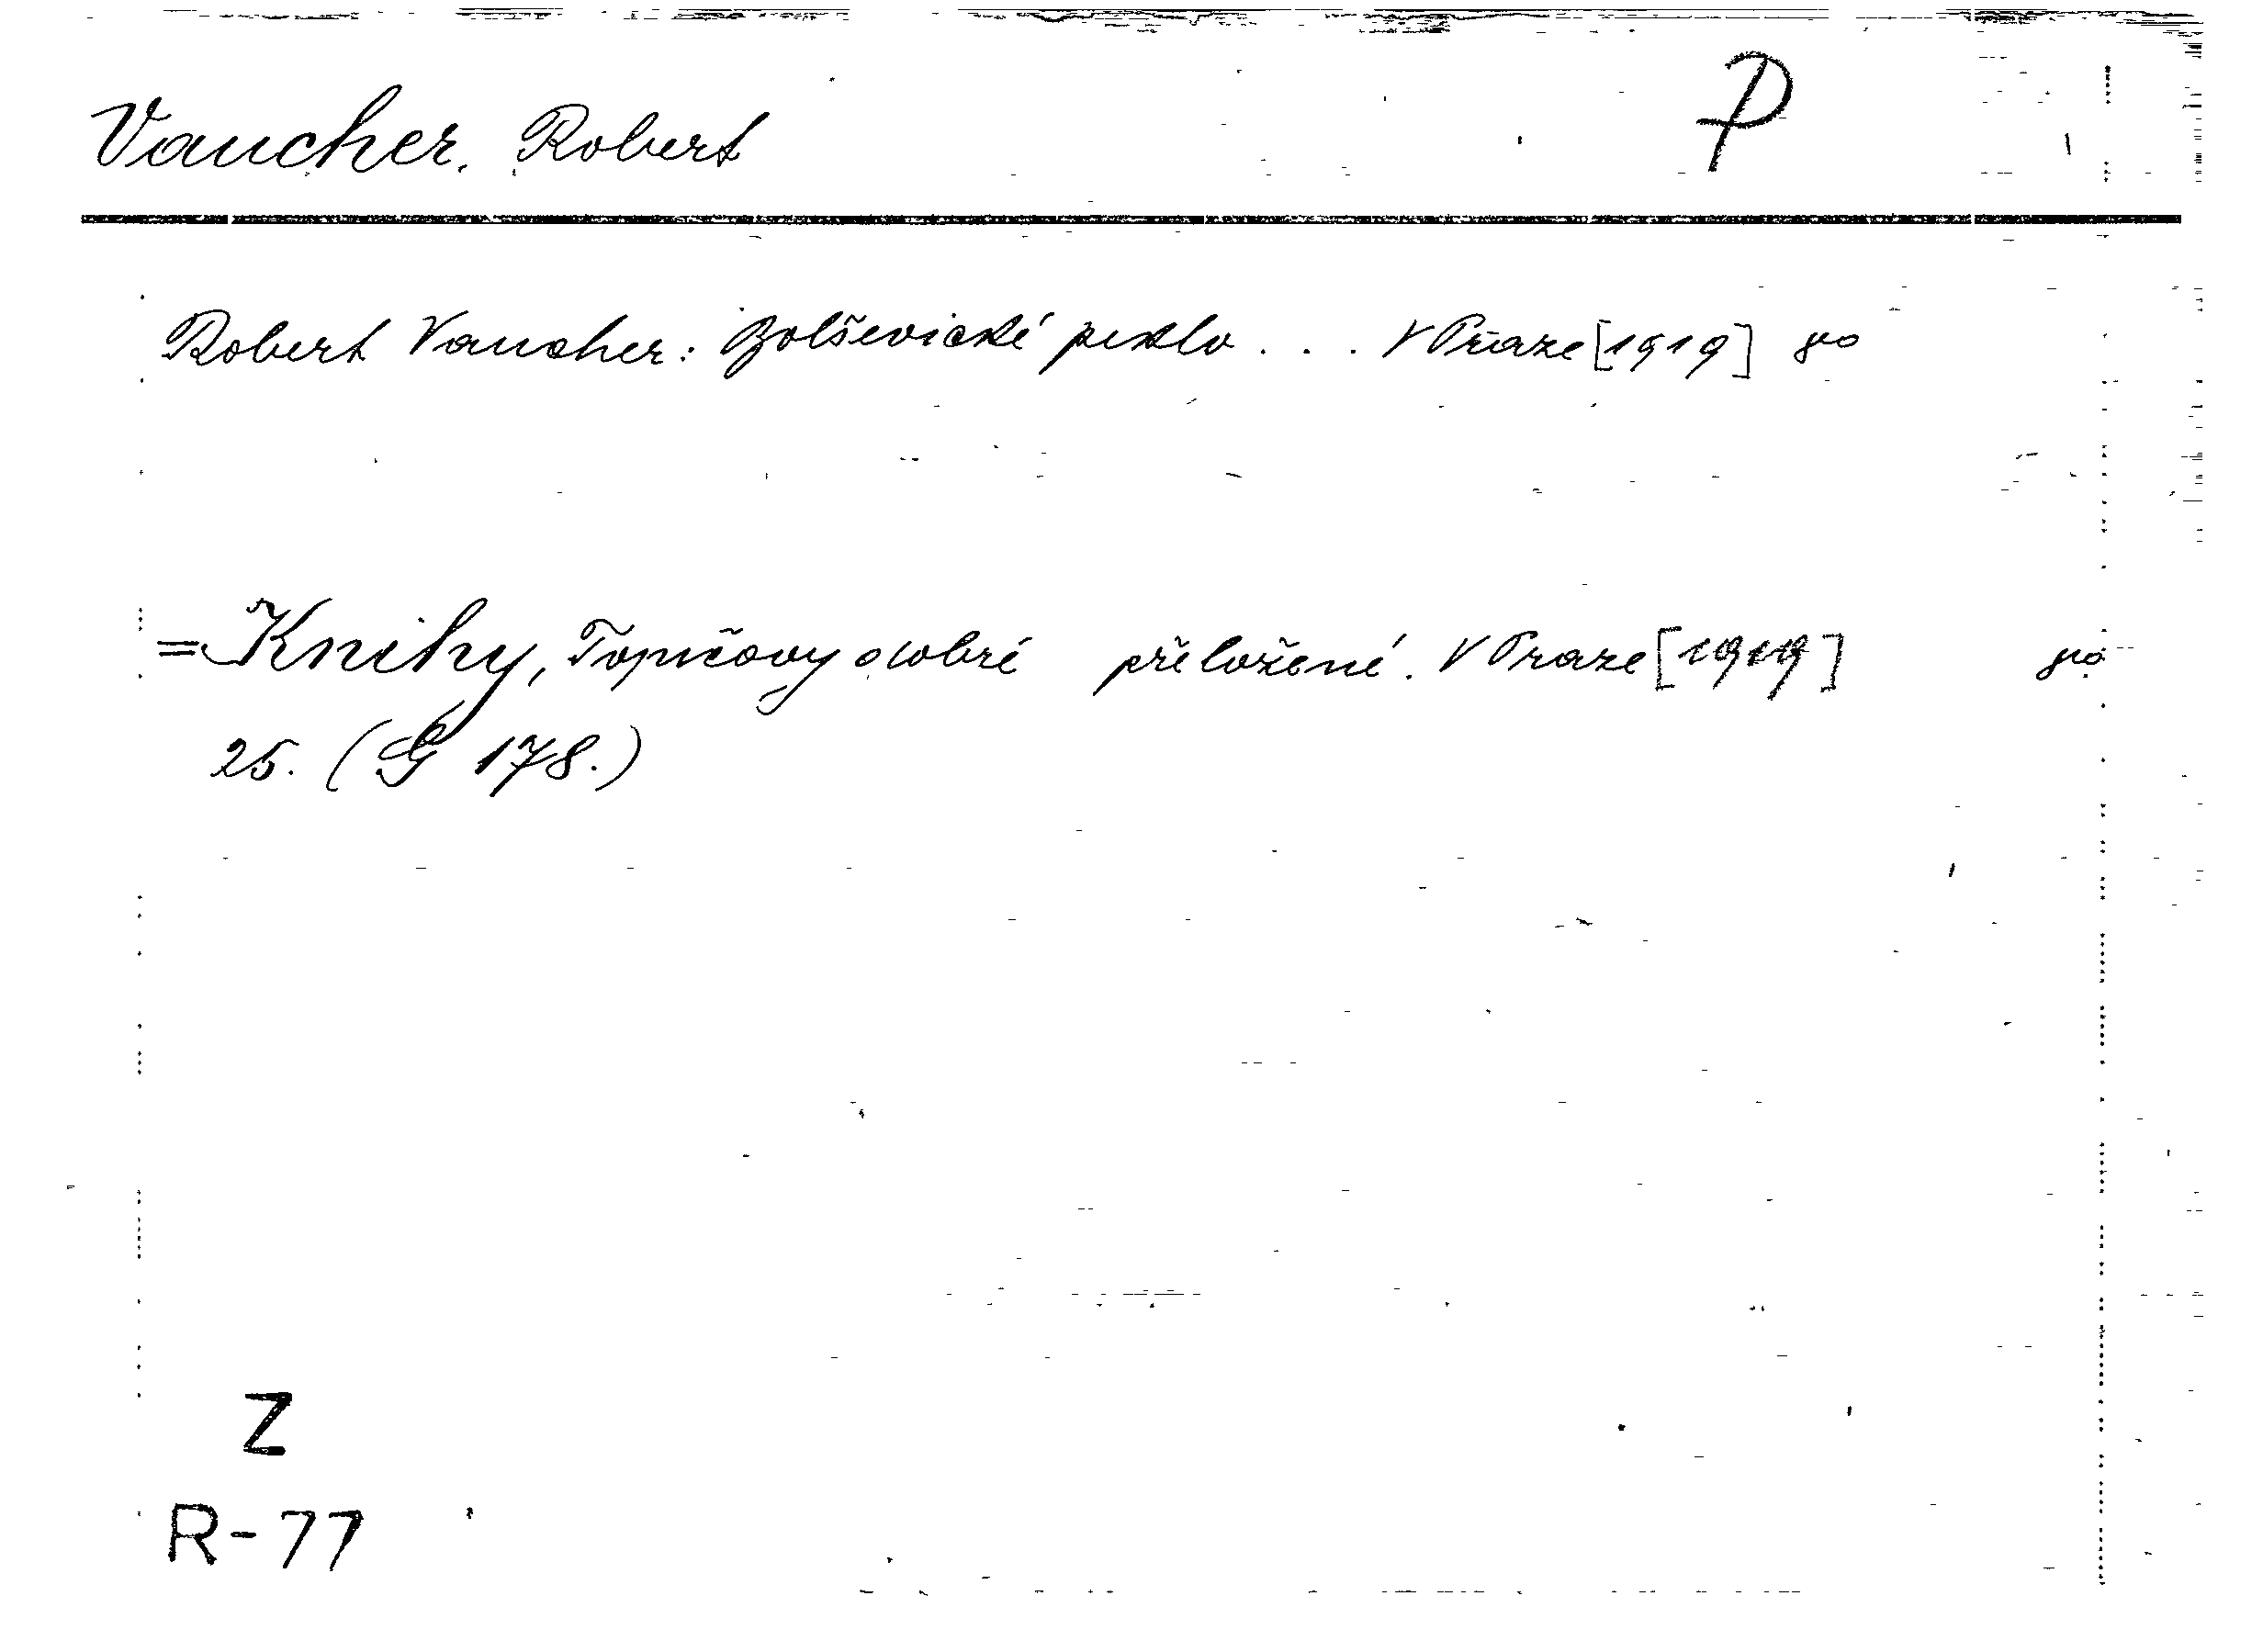 Vaucher, Robert P
Robert Vaucher: Bolševické peklo... V Praze [1919] 8o
= Knihy, Topičovy dobré přeložené. V Praze [1919] 8o
25. (G 178.)
Z
R-77